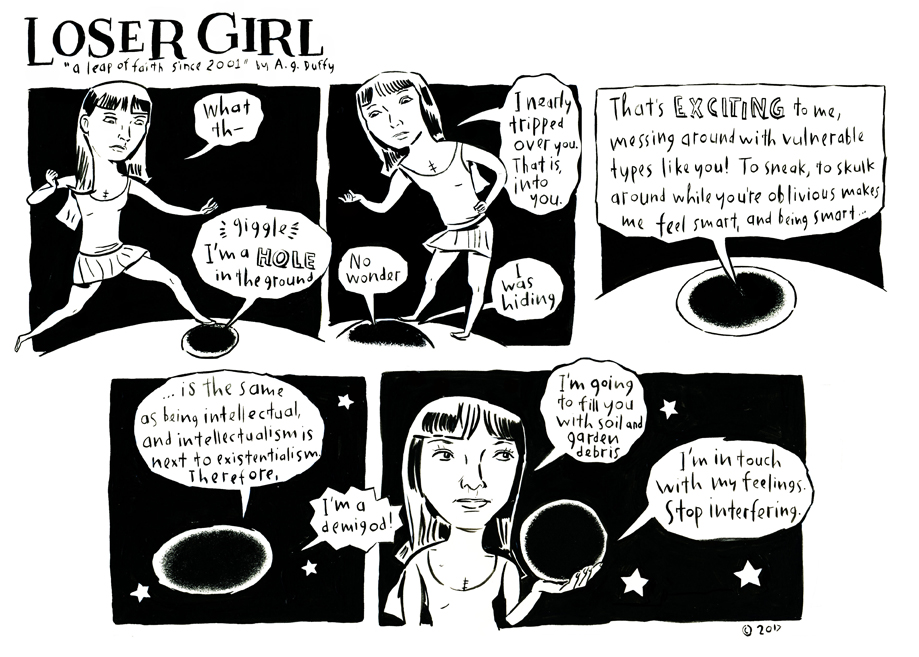 LOSER GIRL
"a leap of faith since 2001" by A.g. Duffy
What
th—
giggle
I'm a HOLE
in the ground
I nearly
tripped
over you.
That is,
into
you.
No
wonder
I
was
hiding
That's EXCITING to me,
messing around with vulnerable
types like you! To sneak, to skulk
around while you're oblivious makes
me feel smart, and being smart...
...is the same
as being intellectual,
and intellectualism is
next to existentialism.
Therefore,
I'm a
demigod!
I'm going
to fill you
with soil and
garden
debris
I'm in touch
with my feelings.
Stop interfering.
©